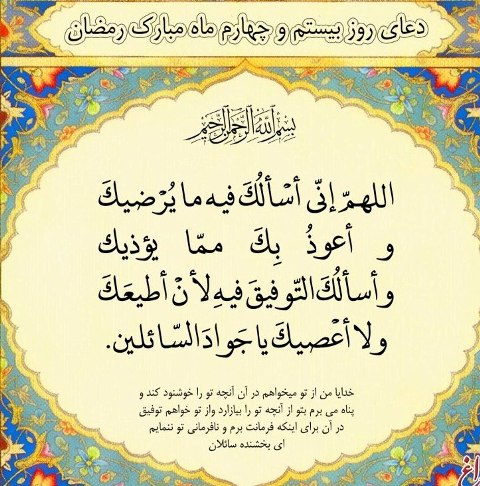 دعای روز بیستم و چهارم ماه مبارک رمضان
بسم الله الرحمن الرحیم
اللهمّ إنّی أسْألُكَ فیهِ ما یُرْضیكَ
و أعوذُ بِكَ ممّا یؤذیك
و أسألُكَ التّوفیقَ فیهِ لأنْ أطیعَكَ
ولا أعْصیكَ یا جَوادَ السّائلین.
خدایا من از تو میخواهم در آن آنچه تو را خوشنود کند و
پناه می برم بتو از آنچه تو را بیازارد واز تو خواهم توفیق
در آن برای اینکه فرمانت برم و نافرمانی تو ننمایم
ای بخشنده سائلان